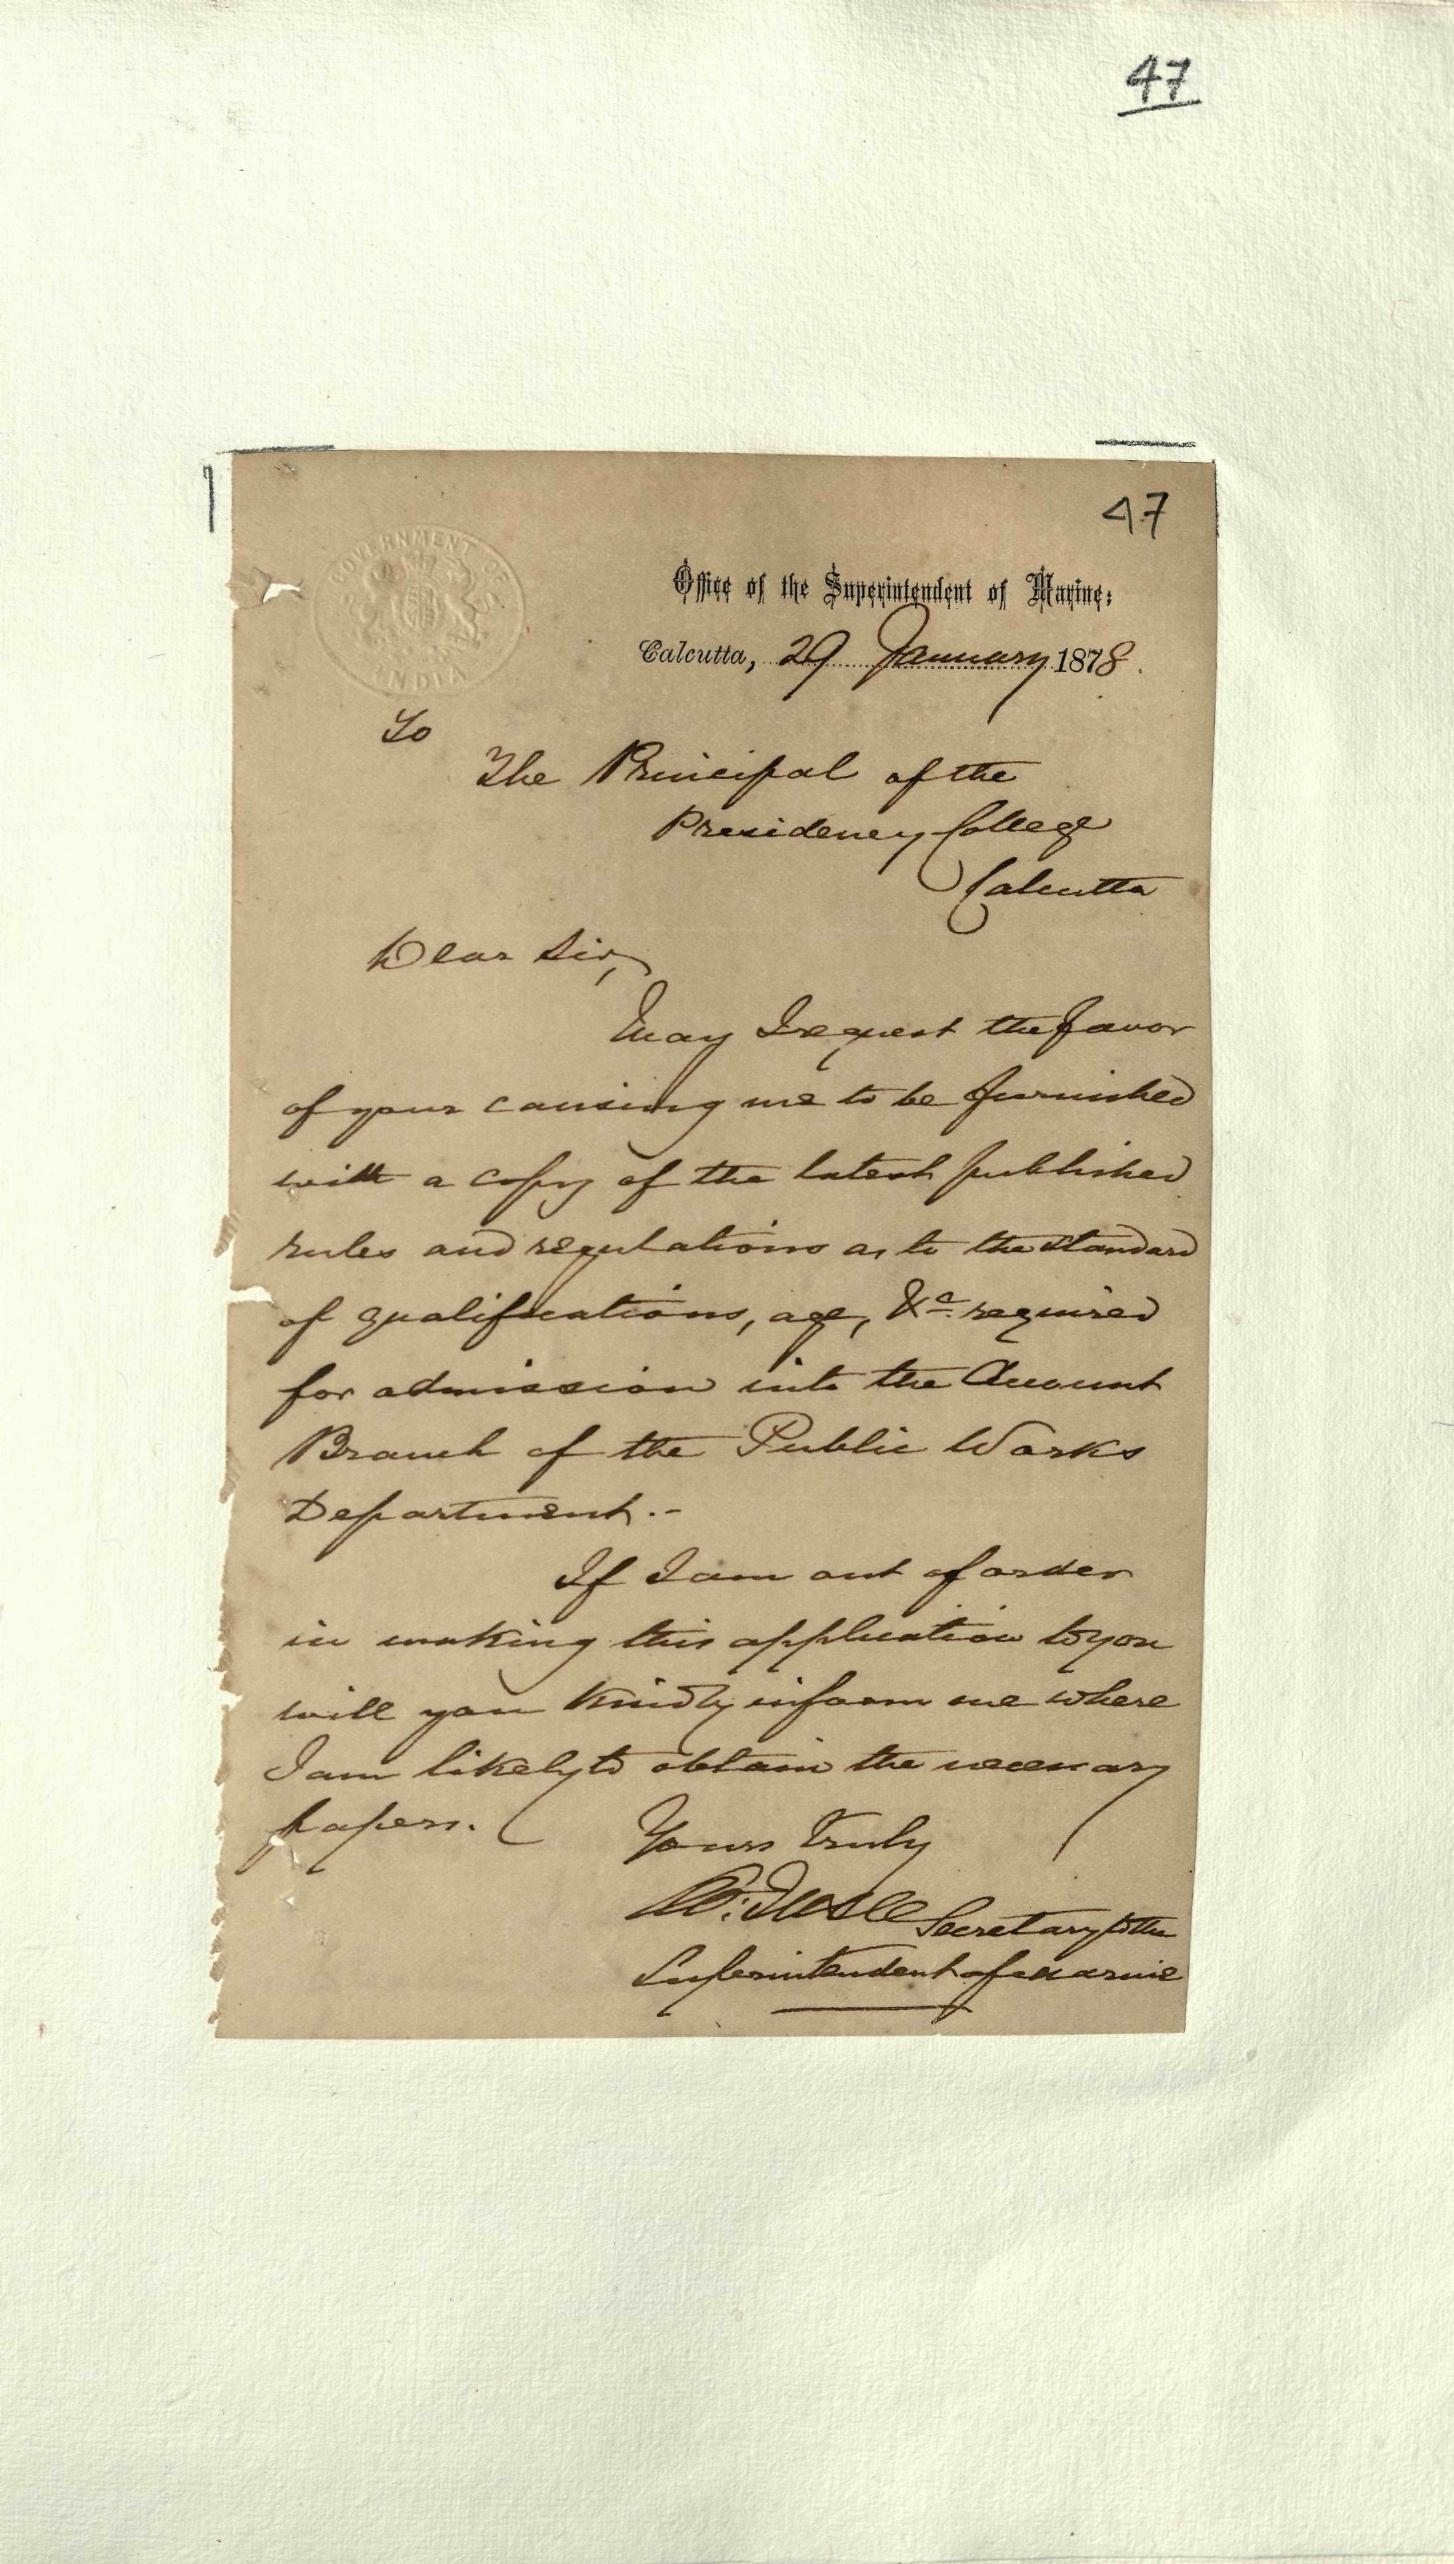 47
47
GOVERNMENT OF INDIA
Office of the Superintendent of Marine:
Calcutta, 29 January 1878.
To
The Principal of the
Presidency College
Calcutta
Dear Sir,
May I request the favor
of your causing me to be furnished
with a copy of the latest published
rules and regulations as to the standard
of qualifications, age, &a required
for admission into the Account
Branch of the Public Works
Department.-
If I am out of order
in making this application to you
will you kindly inform me where
I am likely to obtain the necessary
papers.
Yours truly
Secretary to the
Superintendent of Marine